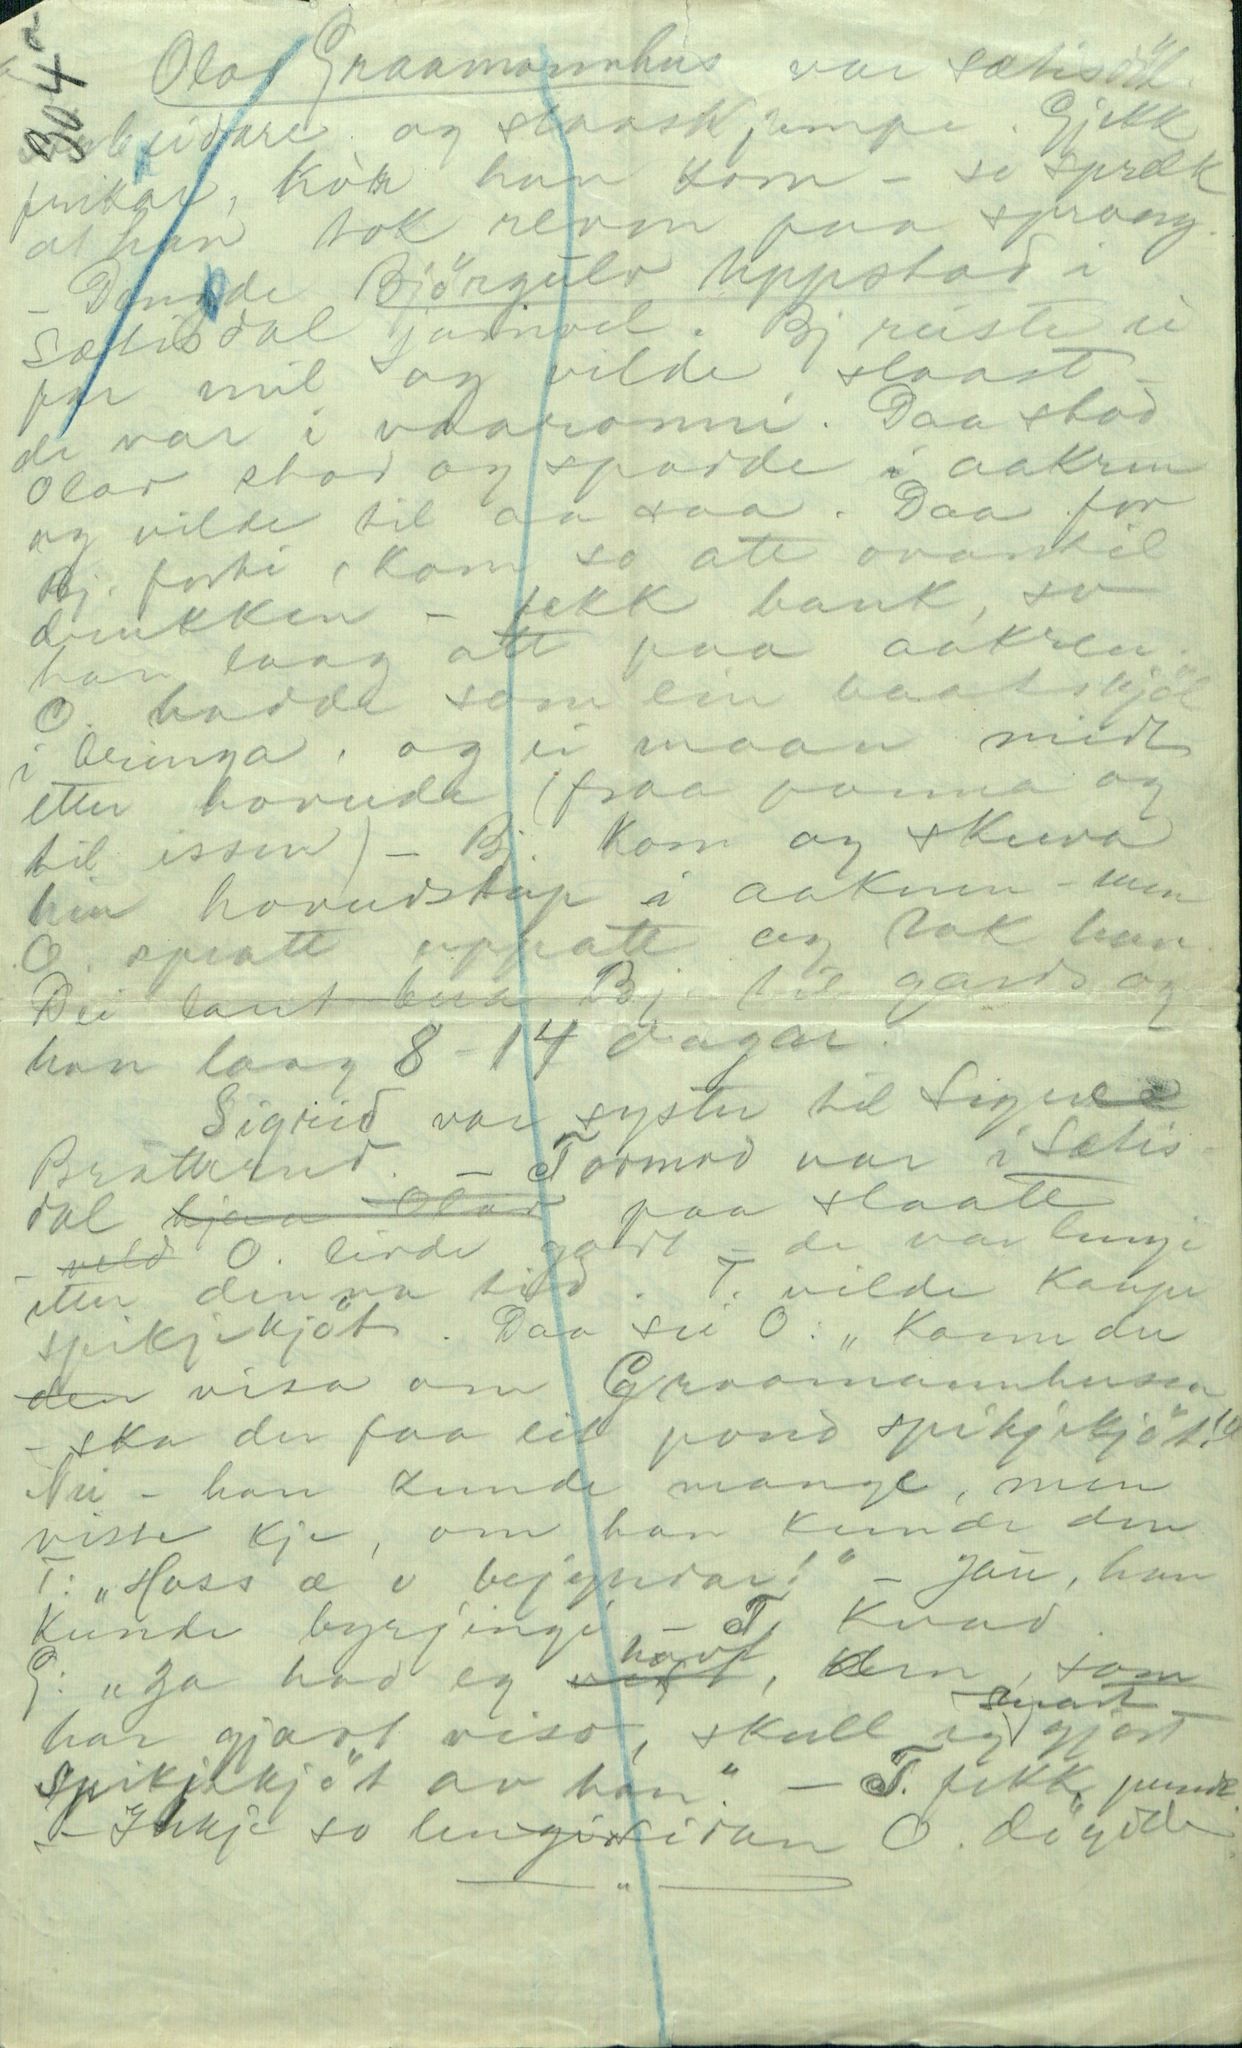 304a
Olav Graamannhus var sætisdöl.
arbeidare og slaaskjempe. Gjekk
frikar, kòr han kom – so sprækk
at han tok reven paa sprang.
– Dengde Björgulv Uppstad i
Sætisdal jamvel. Bj reiste ei
par mil og vilde slaast –
de var i vaaronni. Daa stod
Olav stod og spadde i aakren
og vilde til aa saa. Daa for
Bj. forbi, kom so att ovantil
drukken – fekk bank, so
han laag att paa aakren.
O. hadde som ein baatskjöl
i bringa, og ei maan midt
etter hovude (fraa panna og
til issen) – Bj. kom og skuva
hin hovudstup i aakren – men
O. spratt uppatt og tok han.
Dei laut bera Bj. til gards og
han laag 8–14 dagar.
Sigrid var syster til Sigurd
Bratterud. – Tormod var i Sætis-
dal hjaa Olav paa slaatt
– O. livde godt – de var lengi
etter denna tid. T. vilde kaupe
spikjekjöt. Daa sei O: „Kann du
den visa om Graamannhusen
– ska du faa eit pund spikjekjöt!"
Nei – han kunde mange, men
visste kje, om han kunde den
T: „Hoss æ o bejyndar!" – Jau, han
kunde byrjingi – T. kvad.
G: „Ja had eg havt, den, som
har gjort viso, skull eg snart gjort
spikjekjöt av han." – T. fekk pundi.
– Inkje so lengi sidan O. döydde